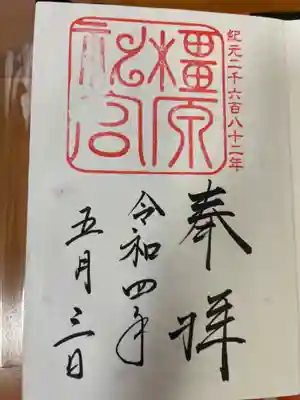 紀元二千六百八十二年
橿原神宮
奉拝
令和四年
五月三日